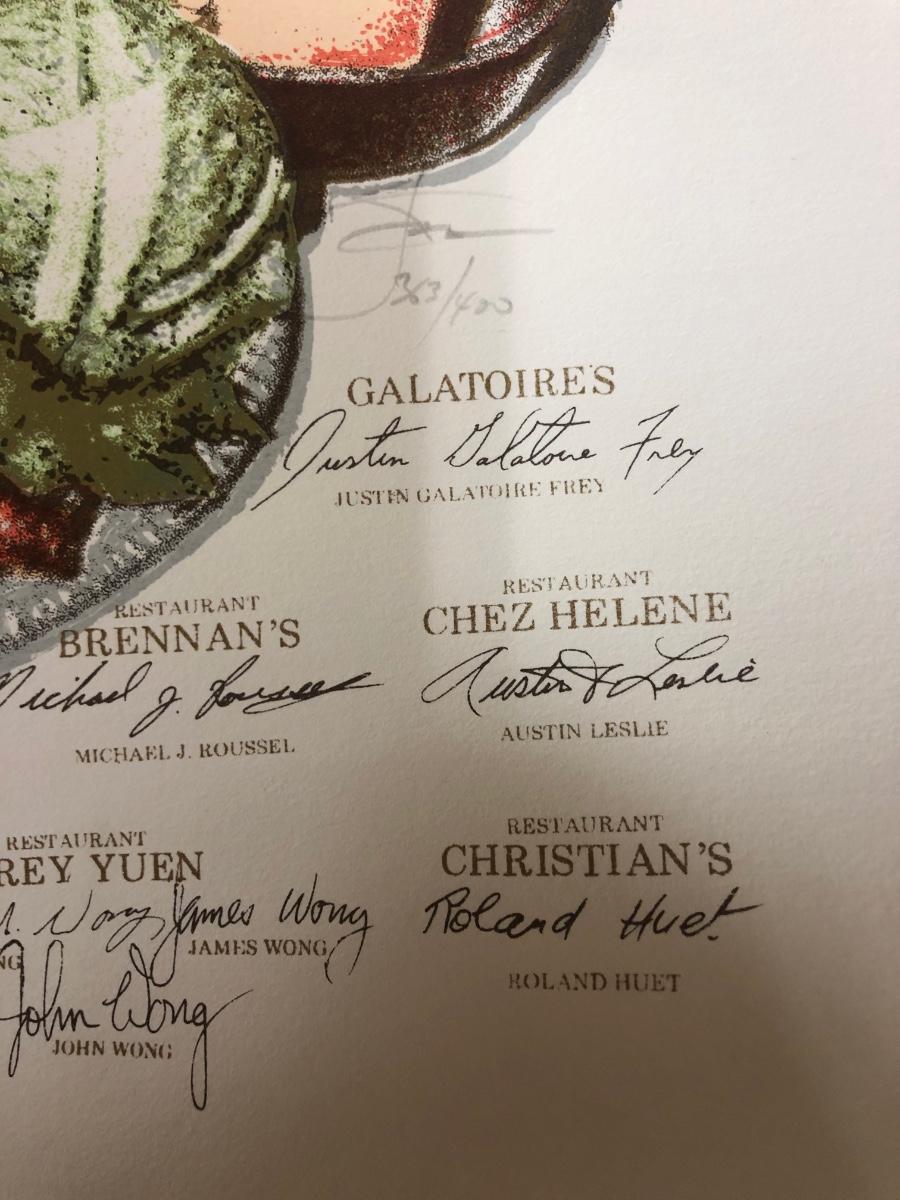 363/400
GALATOIRE'S
Justin Galatoire Frey
JUSTIN GALATOIRE FREY
RESTAURANT
BRENNAN'S
Michael J. Roussel
MICHAEL J. ROUSSEL
RESTAURANT
CHEZ HELENE
Austin Leslie
AUSTIN LESLIE
RESTAURANT
REY YUEN
Wong James Wong
NG JAMES WONG
John Wong
JOHN WONG
RESTAURANT
CHRISTIAN'S
Roland Huet
ROLAND HUET